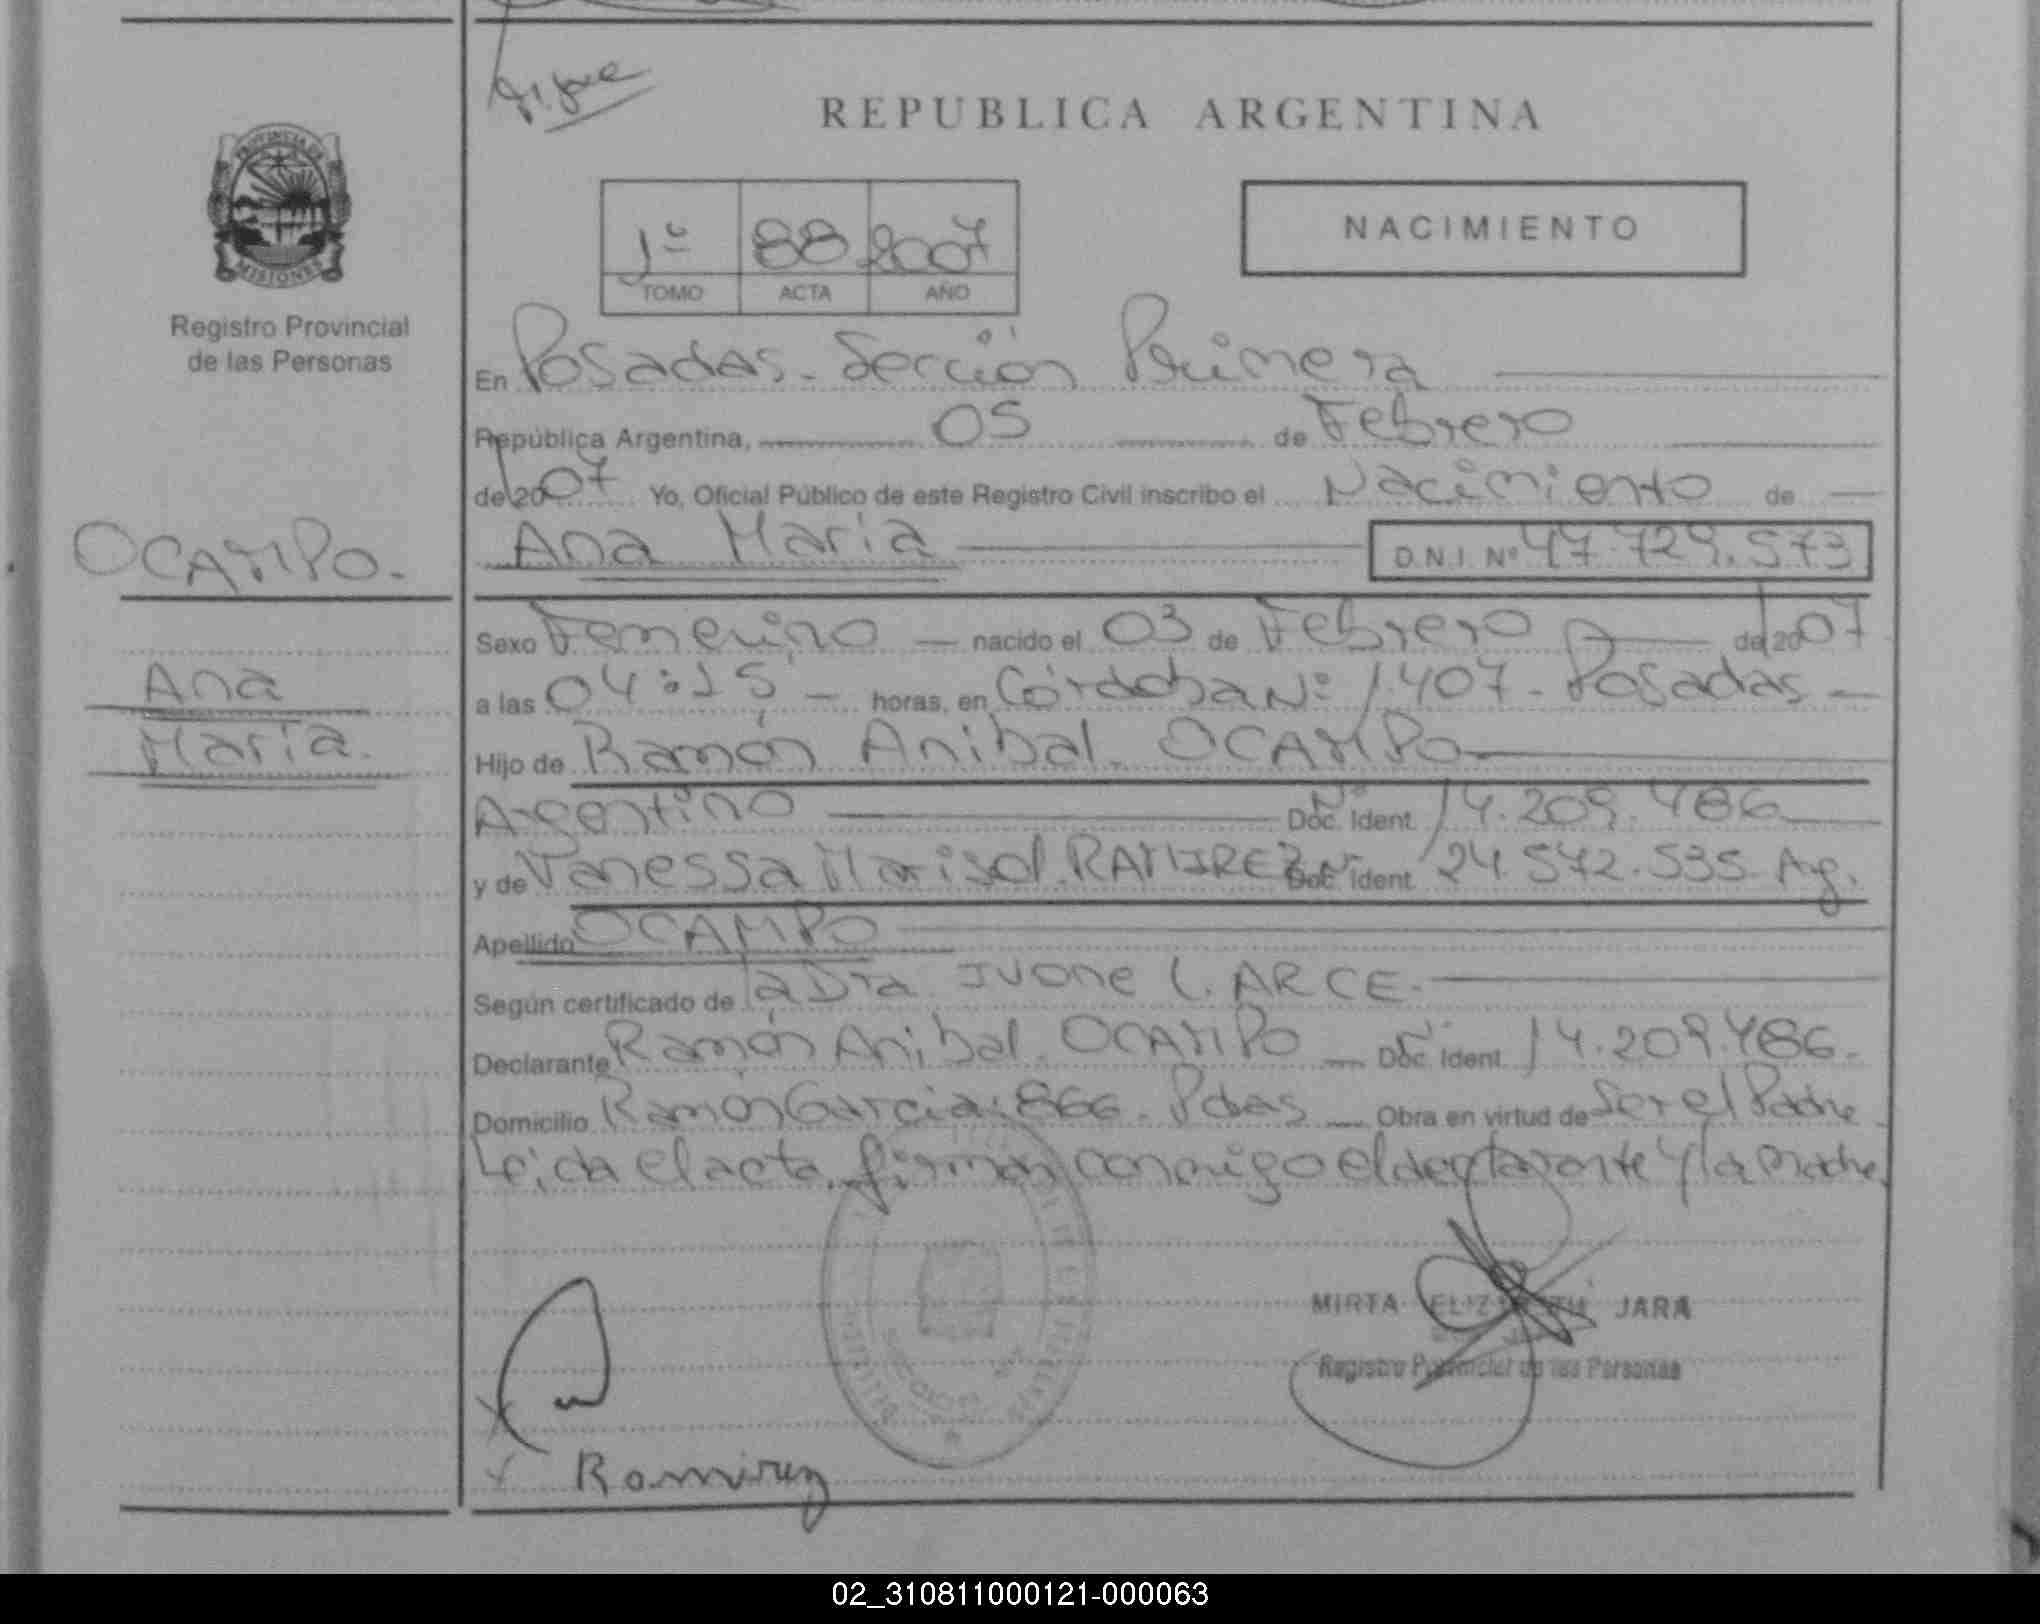 REPUBLICA ARGENTINA
PROVINCIA DE
MISIONES
Registro Provincial
de las Personas
NACIMIENTO
1º 88 2007
TOMO ACTA AÑO
En Posadas - Sección Primera
República Argentina, 05 de Febrero
de 2007 Yo, Oficial Público de este Registro Civil inscribo el Nacimiento de
Ana María D.N.I. Nº 47.729.573
OCAMPO.
Ana
María.
Sexo Femenino nacido el 03 de Febrero de 2007
a las 04:15 horas, en Córdoba Nº 1.407 - Posadas
Hijo de Ramón Anibal OCAMPO
Argentino Doc. Ident. Nº 14.209.486
y de Vanessa Marisol RAMIREZ Doc. Ident. Nº 24.572.535 Arg.
Apellido OCAMPO
Según certificado de la Dra IVONE L. ARCE.
Declarante Ramón Anibal OCAMPO Doc. Ident. Nº 14.209.486.
Domicilio Ramón Garcia: 866 - Pdas Obra en virtud de Ser el Padre
Leida el acta, firman conmigo el declarante y la Madre
MIRTA ELIZABETH JARA
Registro Provincial de las Personas
Ramirez
02_310811000121-000063